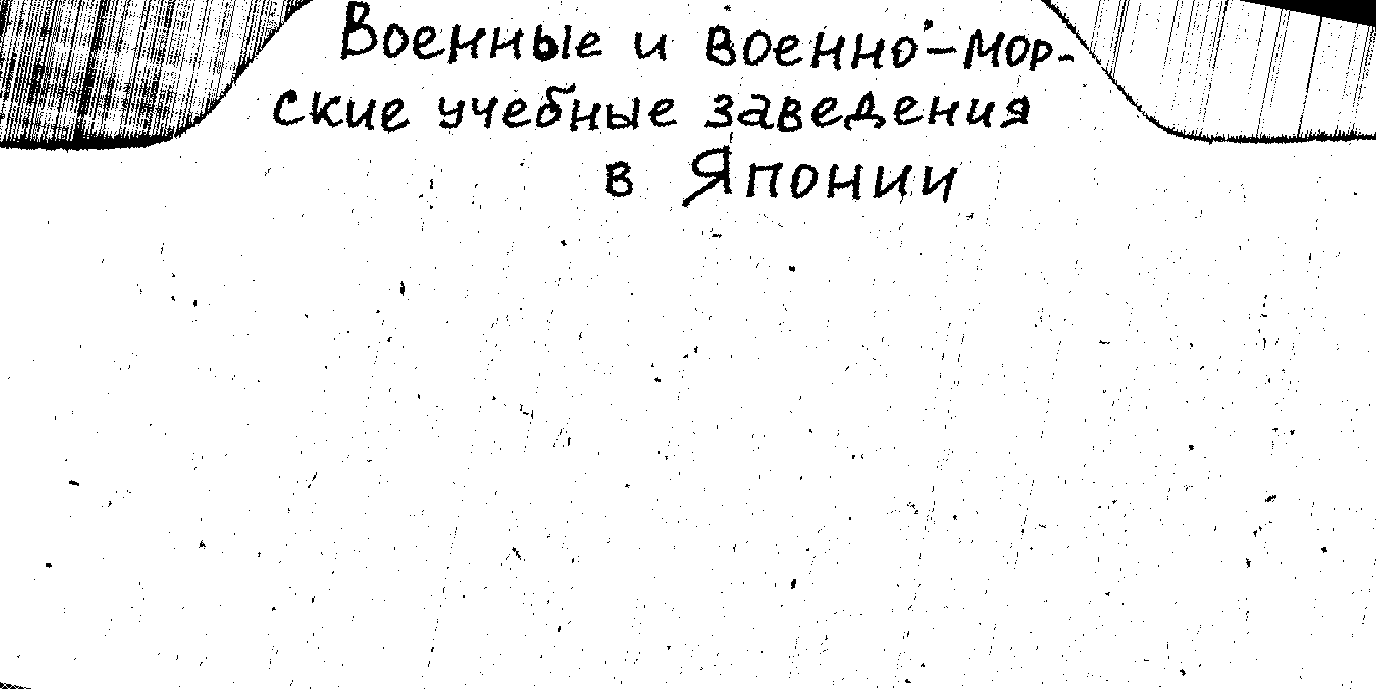 Военные и военно-мор-
ские учебные заведения
в Японии